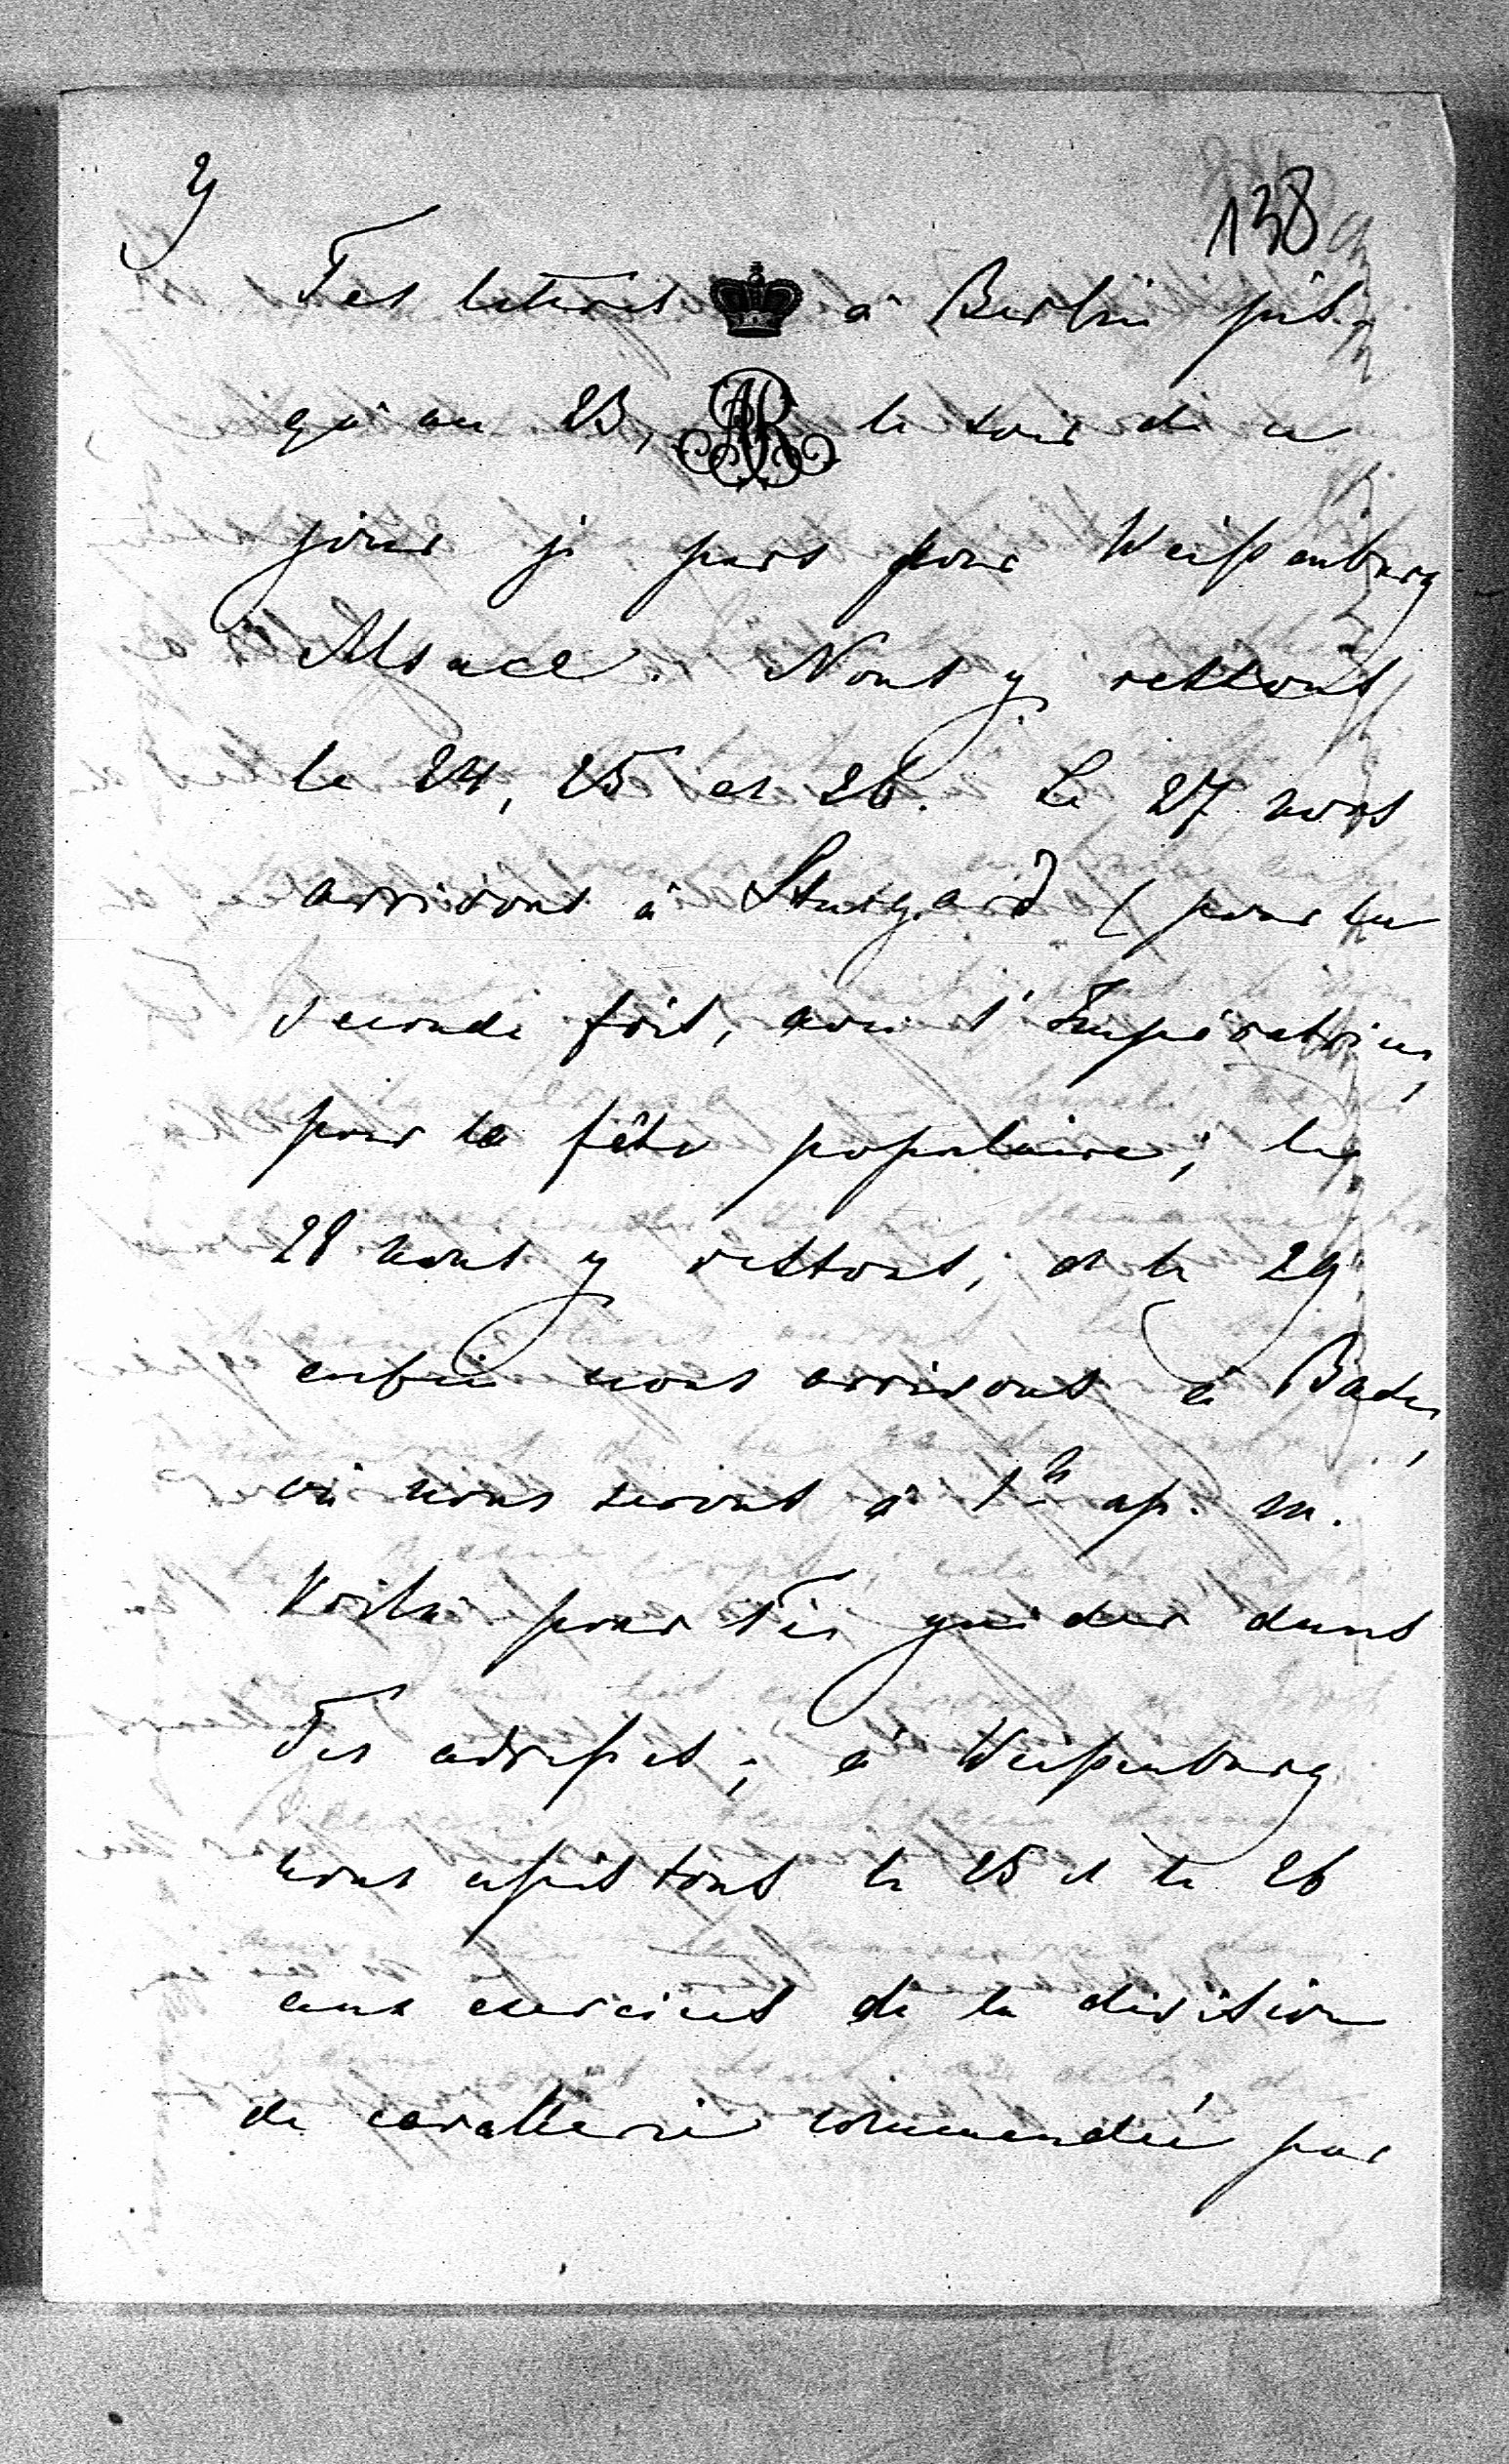 y
138
Tes lettres à Berlin jus-
qu'au 23, le soir de ce
jour je pars pour Weißenburg
Alsace. Nous y restons
le 24, 25 et 26. Le 27 nous
arrivons à Stutgard (pour la
seconde fois, avec l'Impératrice,
pour la fête populaire; le
28 nous y restons; et le 29
enfin nous arrivons à Bade,
où nous serons à 1h ap. m.
Voila pour Te guider dans
Tes adresses; à Weißenburg
nous assistons le 25 et le 26
aux exercices de la division
de cavallerie commandée par